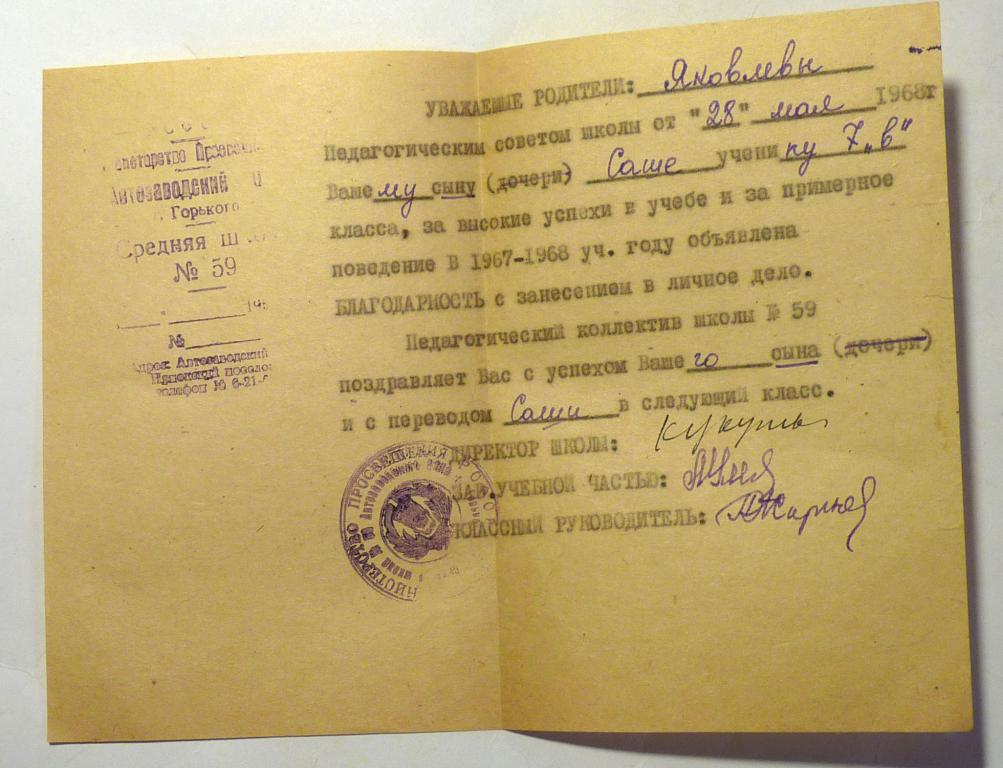 Автозаводский
Горького
Средняя
№ 59
№
Автозаводский
УВАЖАЕМЫЕ РОДИТЕЛИ: Яковлевы
Педагогическим советом школы от "28" мая 1968г
Вашему сыну (дочери) Саше ученику 7 "в"
класса, за высокие успехи в учебе и за примерное
поведение в 1967-1968 уч. году объявлена
БЛАГОДАРНОСТЬ с занесением в личное дело.
Педагогический коллектив школы № 59
поздравляет Вас с успехом Вашего сына (дочери)
и с переводом Саши в следующий класс.
ДИРЕКТОР ШКОЛЫ:
ЗАВ.УЧЕБНОЙ ЧАСТЬЮ:
КЛАССНЫЙ РУКОВОДИТЕЛЬ:
ПРОСВЕЩЕНИЯ